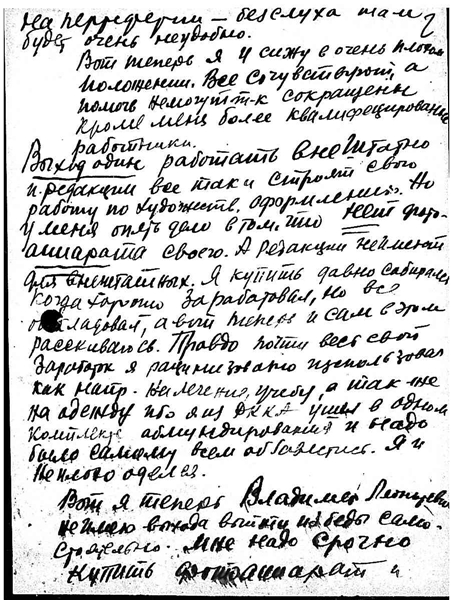 на периферии – без слуха там
будет очень неудобно.
Вот теперь я и сижу в очень плохом
положении. Все сочувствуют, а
помочь немогут т-к сокращены
кроме меня более квалифецированые
работники.
Выход один работать внештатно
и редакции все так и строят свою
работу по художеств. оформлению. Но
у меня опять дело в том, что нет фото-
аппарата своего. А редакции неимеют
для внештатных. Я купить давно собирался
когда хорошо зарабатовал, но все
откладовал, а вот теперь и сам в этом
раскаиваюсь. Правдо почти весь свой
Заработок я рационизовано использовал
как напр. на лечение, учебу, а так-же
на одежду ибо я из РККА ушел в одном
комплекте обмундирования и надо
было самому всем обзавестись. Я и
неплохо оделся.
Вот я теперь Владимир
неимею выхода выйти из беды само-
стоятельно. Мне надо срочно
купить фотоаппарат и